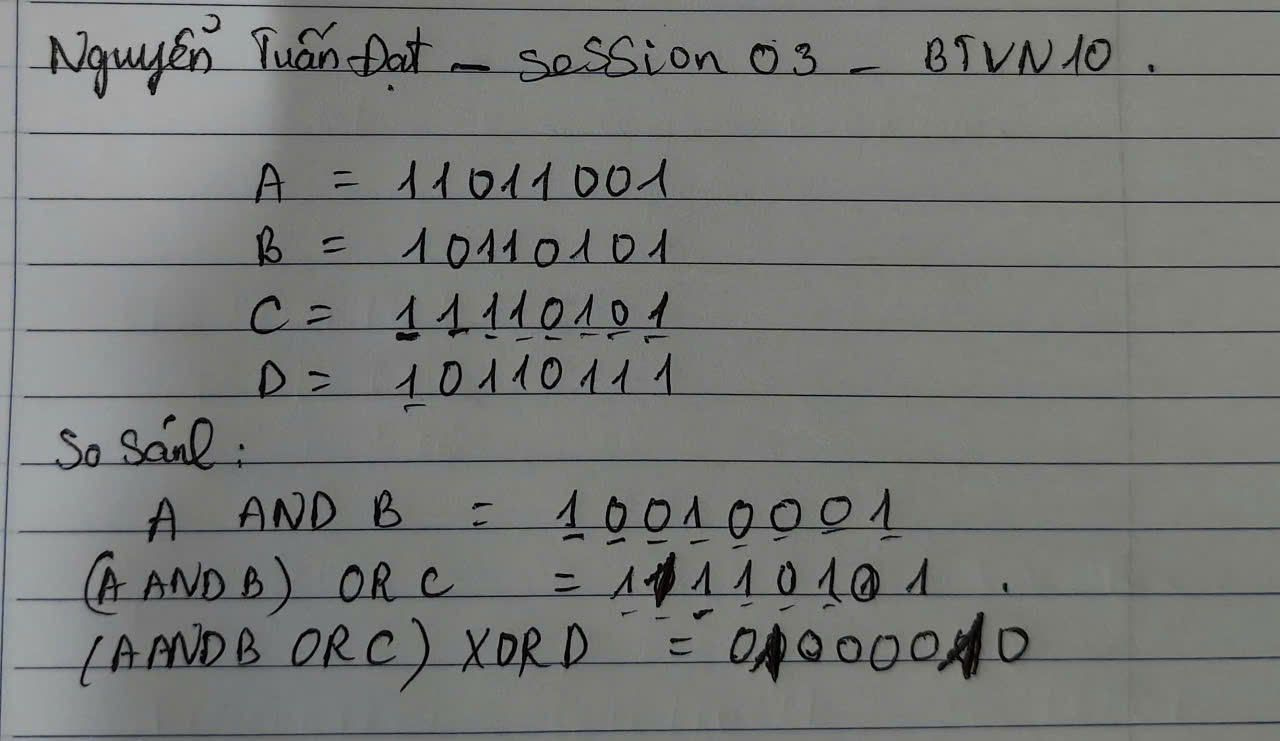 Nguyễn Tuấn Đạt - Session 03 - BTVN10.
A = 11011001
B = 10110101
C = 11110101
D = 10110111
So sánh:
A AND B = 10010001
(A AND B) OR C = 11110101.
(A AND B OR C) XOR D = 01000010